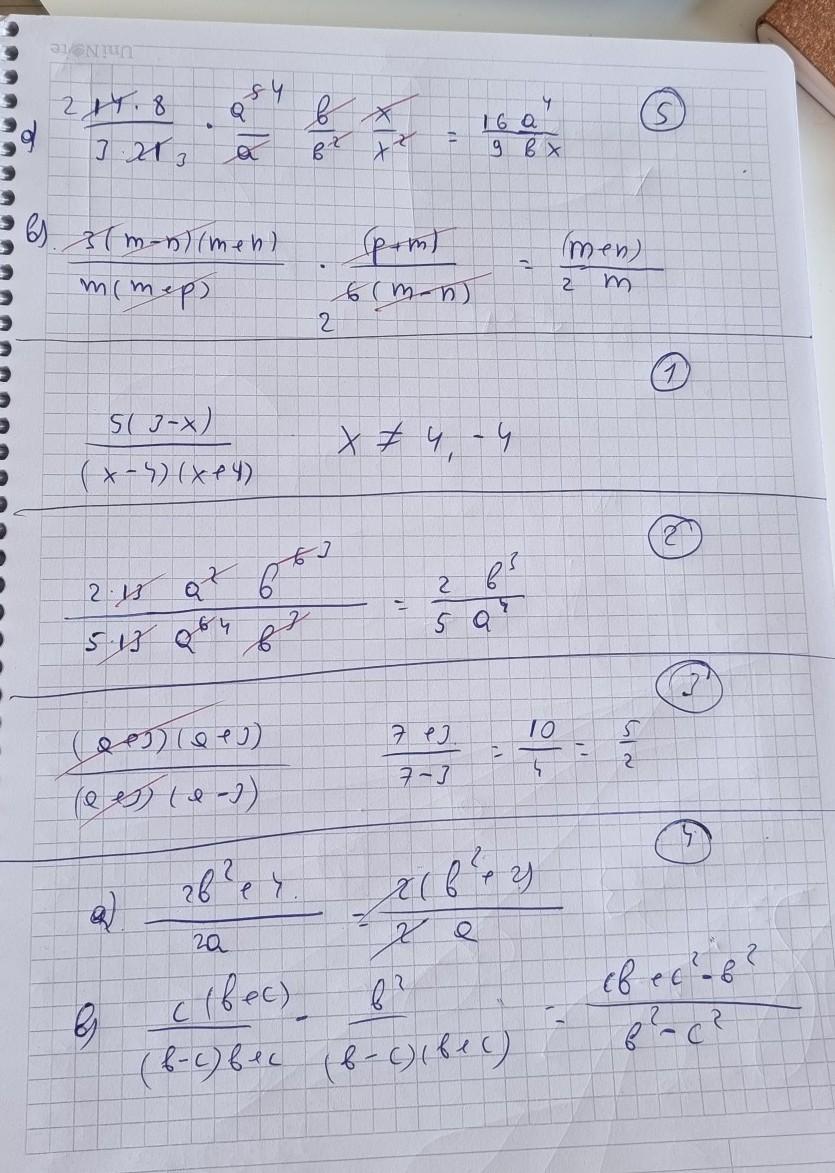 UniNote
а) 2 14·8 / 3·21 3 · a⁵ ⁴ / a в / в² x / x² = 16 a⁴ / 9 в x ⑤
в) 3(m-n)(m+n) / m(m+p) · (p+m) / 6(m-n) 2 = (m+n) / 2 m
①
5(3-x) / (x-4)(x+4) x ≠ 4, -4
②
2·13 a² в⁶ ³ / 5·13 a⁶ ⁴ в³ = 2 в³ / 5 a⁴
③
(a+3)(a+3) / (a+3)(a-3) 7+3 / 7-3 = 10 / 4 = 5 / 2
④
а) 2в²+4 / 2a = 2(в²+2) / 2 a
в) c(в+c) / (в-c)в+c - в² / (в-c)(в+c) = cв+c²-в² / в²-c²